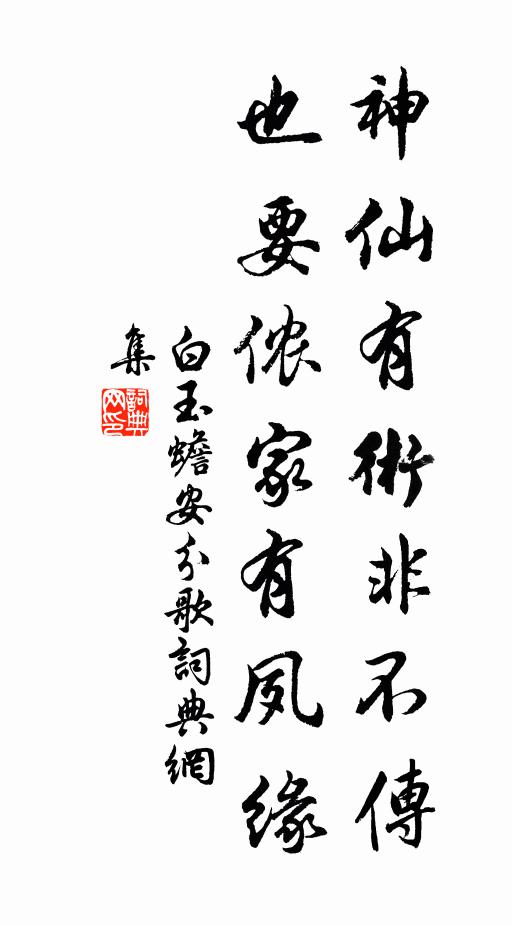 神仙有術非不傳
也要侬家有夙缘
白玉蟾安分歌詞典網
集
詞典
网印